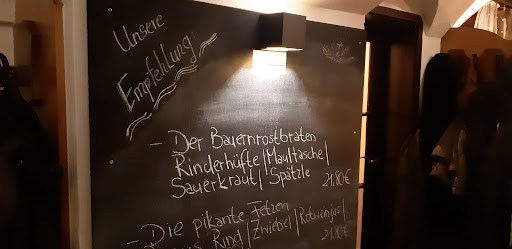 Unsere
Empfehlung
- Der Bauernrostbraten
Rinderhüfte/Maultasche/
Sauerkraut/ Spätzle 21.80€
- Die pikante Fetzen
Ring/ Zwiebel/Rotweinjus/
21.80€